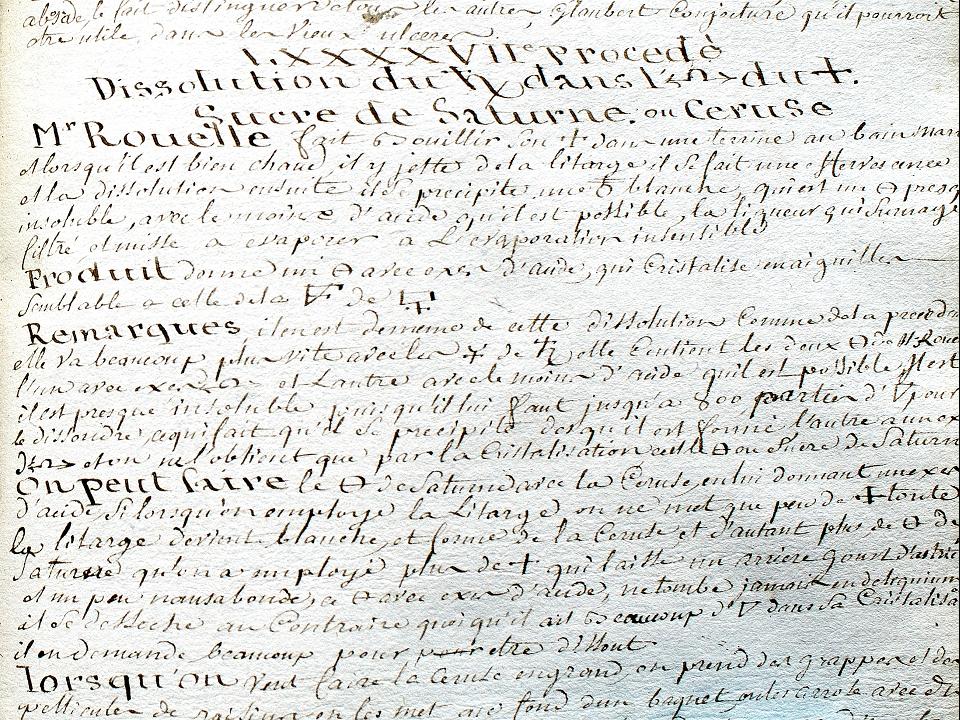 absède, le fait distinguer de tous les autres, Glaubert Conjecture qu'il pourroit
etre utile, dans les Vieux ulceres.
LXXXXVIIe Procedé
Dissolution du ♄ dans l' du ✝.
Sucre de Saturne, ou Ceruse
Mr Rouelle fait Bouillir son ✝ dans une terrine au bain mari
et lorsqu'il est bien chaud, il y jette de la litarge, il se fait une effervescence
et la dissolution ensuite il se precipite, une blanche, qui est un presq
insoluble, avec le moins d'acide qu'il est possible, la liqueur qui surnage
filtré et misse a evaporer a L'evaporation insensible
Produit donne un avec excés d'acide, qui Cristalise en aiguilles
Semblable a celle de la de
Remarques il en est dememe de cette dissolution Comme de la preceden
elle va beaucoup plus vite avec les de ♄, elle Contient les deux de Mr Rouel
l'un avec excés et L'autre avec le moins d'acide qu'il est possible,
il est presque insoluble puisqu'il lui faut jusqu'a 800 parties d' pour
le dissoudre, cequi fait qu'il se precipite desqu'il est formé l'autre avec ex
et on ne l'obtient que par la Cristalisation ou Sucre de Saturn
On peut faire le de Saturne avec la Ceruse, en lui donnant un exces
d'acide, Si lorsqu'on employe la Litarge on ne met que peu de ✝ toute
la litarge devient blanche, et forme de la Ceruse et d'autant plus de de
Saturne qu'on a employé plus de ✝ qui laisse un arriere gout d'astric
et un peu nausabonde, ce avec exces d'acide, ne tombe jamais en deliquium
il se desseche au Contraire quoiqu'il ait beaucoup d' dans sa Cristalisa
il en demande beaucoup pour etre dissout
Lorsqu'on veut faire la Ceruse en grand, on prend des grappes et des
pellicules de raisins, on les met au fond d'un baquet, on les arrose avec du